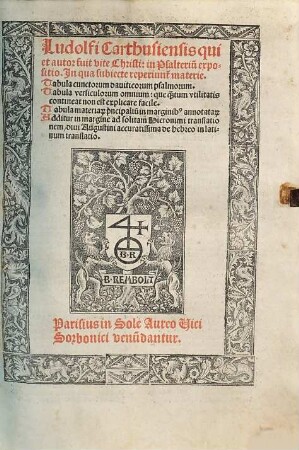 Ludolfi Carthusiensis qui
et autor fuit vite Christi: in Psalteriũ expo-
sitio. In qua subiecte reperiunť materie.
Tabula cunctorum dauiticorum psalmorum.
Tabula versiculorum omnium: que q̃tum vtilitatis
contineat non est explicare facile.
Tabula materiaꝝ p̃ncipaliũ in marginibꝰ annotataꝝ
Additur in margine ad solitam Hieronimi translatio
nem, diui Augustini accuratissima de hebreo in lati
num translatio.
B R
B·REMBOLT
Parisius in Sole Aureo Vici
Sorbonici venũdantur.